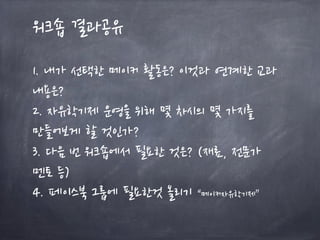 워크숍 결과공유
1. 내가 선택한 메이커 활동은? 이것과 연계한 교과
내용은?
2. 자유학기제 운영을 위해 몇 차시의 몇 가지를
만들어보게 할 것인가?
3. 다음 번 워크숍에서 필요한 것은? (재료, 전문가
멘토 등)
4. 페이스북 그룹에 필요한것 올리기 "메이커자유학기제"